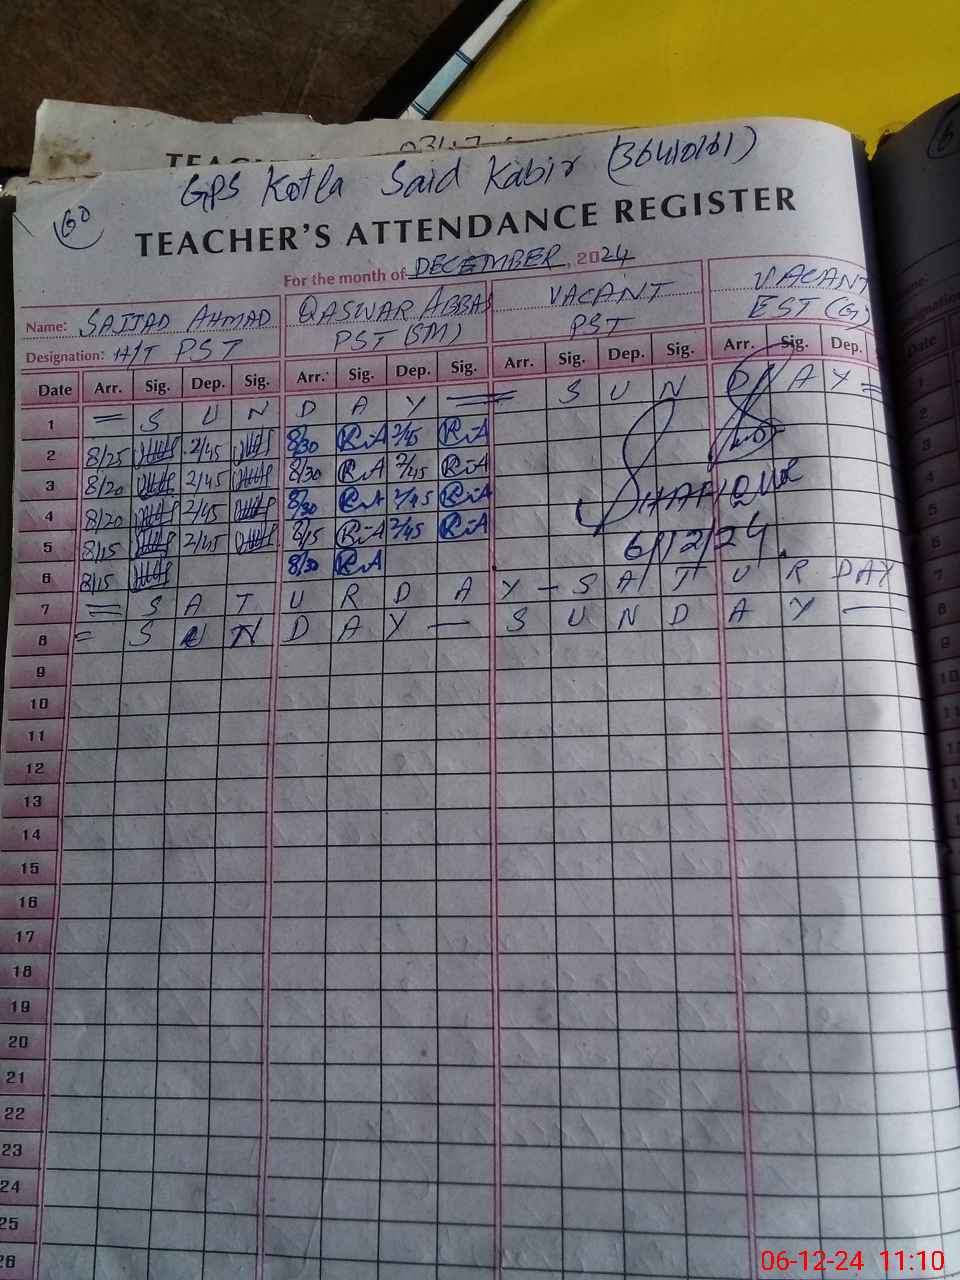 GPS Kotla Said Kabir (36410161)
60
TEACHER'S ATTENDANCE REGISTER
For the month of DECEMBER, 2024
Name: SAJJAD AHMAD QASWAR ABBAS VACANT VACANT
Designation: H/T PST PST (SM) PST EST (G)
Date Arr. Sig. Dep. Sig. Arr. Sig. Dep. Sig. Arr. Sig. Dep. Sig. Arr. Sig. Dep.
1 = S U N D A Y = S U N D A Y =
2 8/25 2/45 8/30 R.A 2/45 R.A
3 8/20 2/45 8/30 R.A 2/45 R.A
4 8/20 2/45 8/30 R.A 2/45 R.A
5 8/15 2/45 8/15 R.A 2/45 R.A
SHAFIQUR
6/12/24
6 8/15 8/30 R.A
7 = S A T U R D A Y - S A T U R DAY
8 = S U N D A Y - S U N D A Y -
9
10
11
12
13
14
15
16
17
18
19
20
21
22
23
24
25
26
06-12-24 11:10